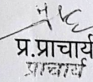 प्र.प्राचार्य
प्राचार्य